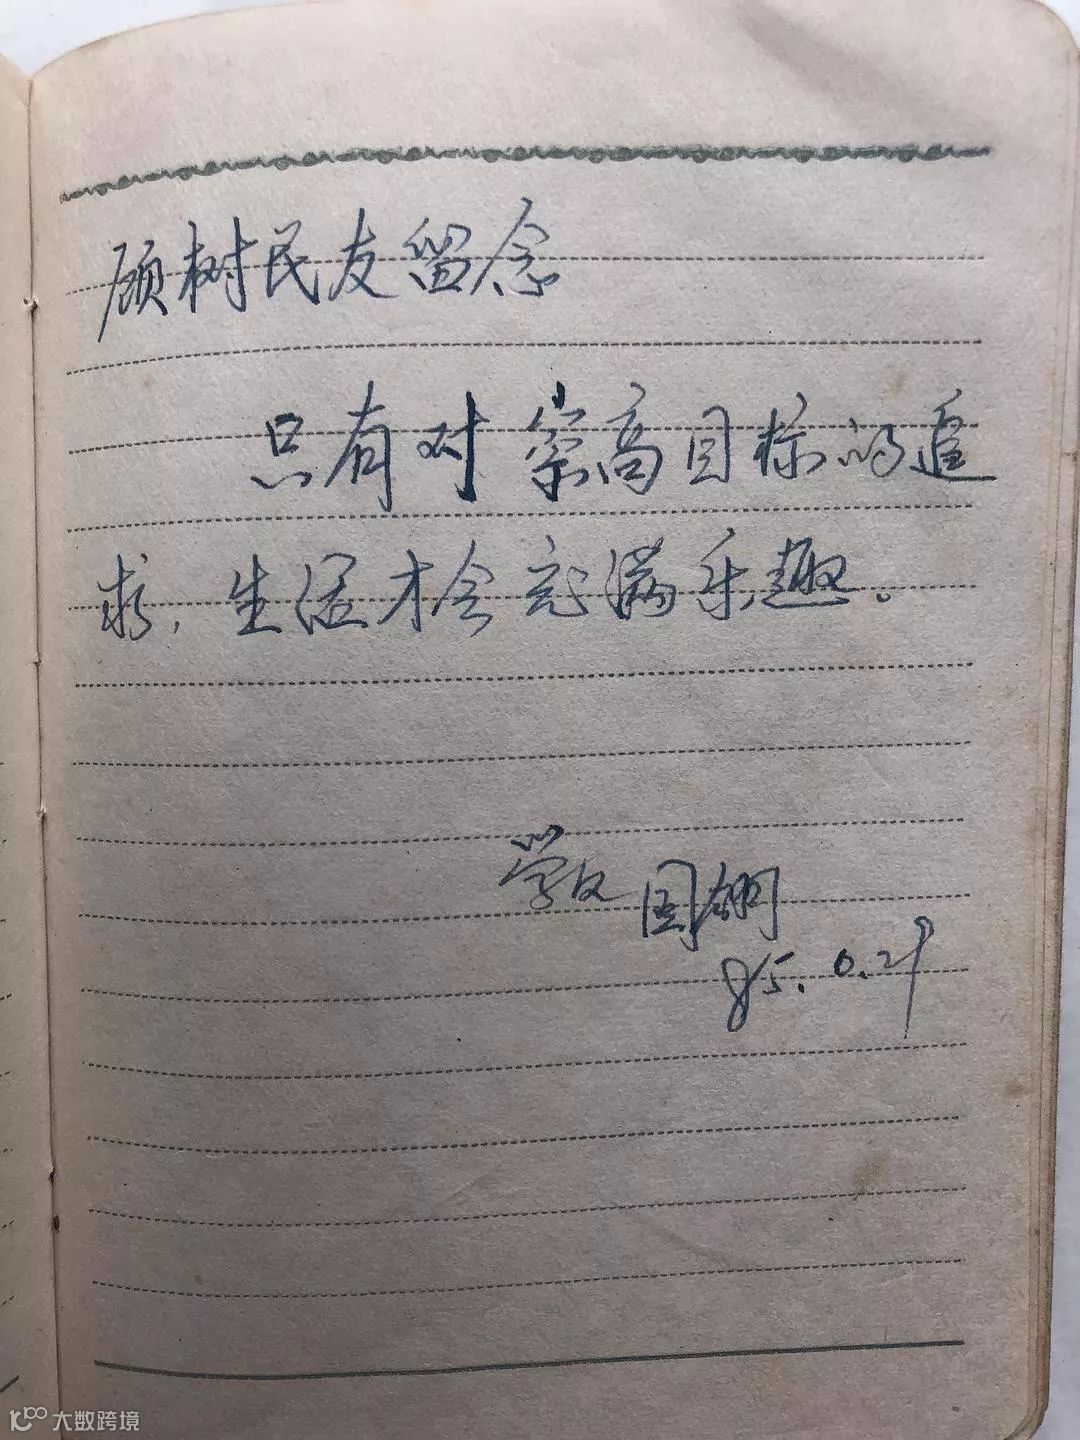 顾树民友留念
只有对崇高目标的追
求，生活才会充满乐趣。
学友 国
85.
大数跨境